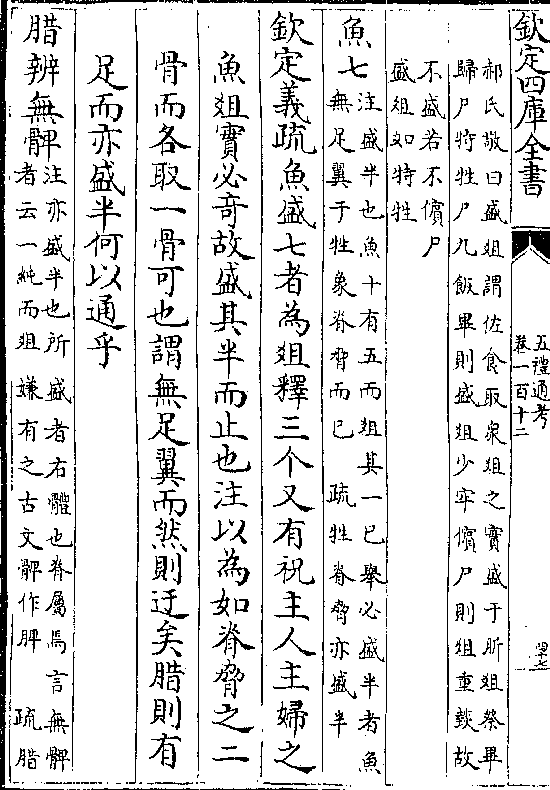 欽定四庫全書
五禮通考
卷一百十二
郝氏敬曰盛俎謂佐食取衆俎之實盛于肵俎祭畢
歸尸特牲尸九飯畢則盛俎少牢儐尸則俎重燅故
不盛若不儐尸
盛俎如特牲
魚七
注盛半也魚十有五而俎其一已舉必盛半者魚
無足翼于牲象脊脅而已 疏牲脊脅亦盛半
欽定義疏魚盛七者為俎釋三个又有祝主人主婦之
魚俎實必奇故盛其半而止也注以為如脊脅之二
骨而各取一骨可也謂無足翼而然則迂矣腊則有
足而亦盛半何以通乎
腊辨無髀
注亦盛半也所盛者右體也脊屬焉言無髀
者云一純而俎嫌有之古文髀作脾 疏腊